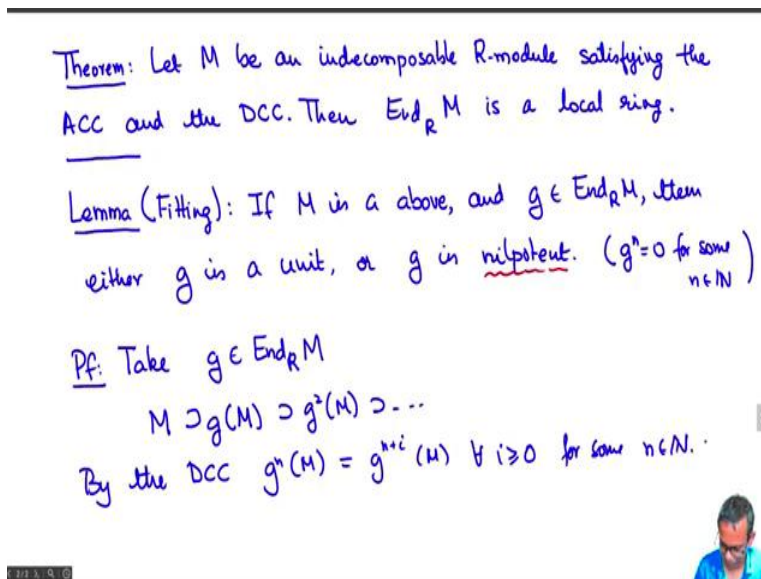 Theorem: Let M be an indecomposable R-module satisfying the
ACC and the DCC. Then End_R M is a local ring.
Lemma (Fitting): If M is a above, and g ∈ End_R M, then
either g is a unit, or g is nilpotent. (gⁿ=0 for some
n∈ℕ)
Pf: Take g ∈ End_R M
M ⊃ g(M) ⊃ g²(M) ⊃ ...
By the DCC gⁿ(M) = gⁿ⁺ⁱ(M) ∀ i≥0 for some n∈ℕ.